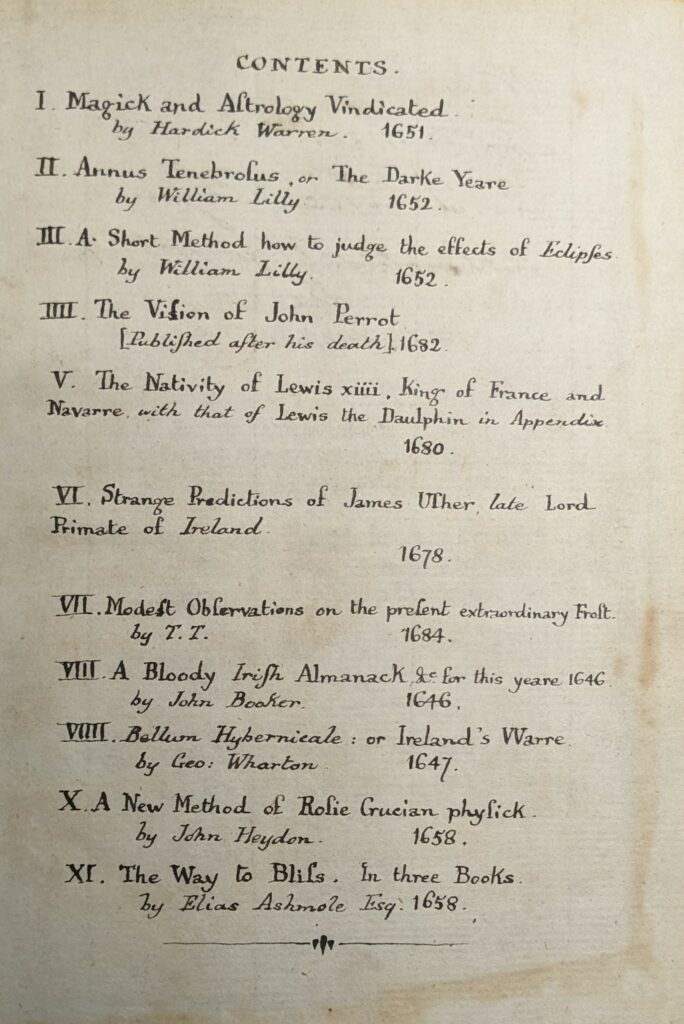 CONTENTS.
I. Magick and Aſtrology Vindicated.
by Hardick Warren. 1651.
II. Annus Tenebroſus, or The Darke Yeare
by William Lilly 1652.
III. A. Short Method how to judge the effects of Eclipſes.
by William Lilly. 1652.
IIII. The Viſion of John Perrot
[Publiſhed after his death]. 1682.
V. The Nativity of Lewis xiiii, King of France and
Navarre, with that of Lewis the Daulphin in Appendix.
1680.
VI. Strange Predictions of James Uſher, late Lord
Primate of Ireland.
1678.
VII. Modeſt Obſervations on the preſent extraordinary Froſt.
by T. T. 1684.
VIII. A Bloody Iriſh Almanack, &c for this yeare 1646.
by John Booker. 1646.
VIIII. Bellum Hybernicale: or Ireland's VVarre.
by Geo: Wharton. 1647.
X. A New Method of Roſie Crucian phyſick.
by John Heydon. 1658.
XI. The Way to Bliſs. In three Books.
by Elias Ashmole Esq: 1658.